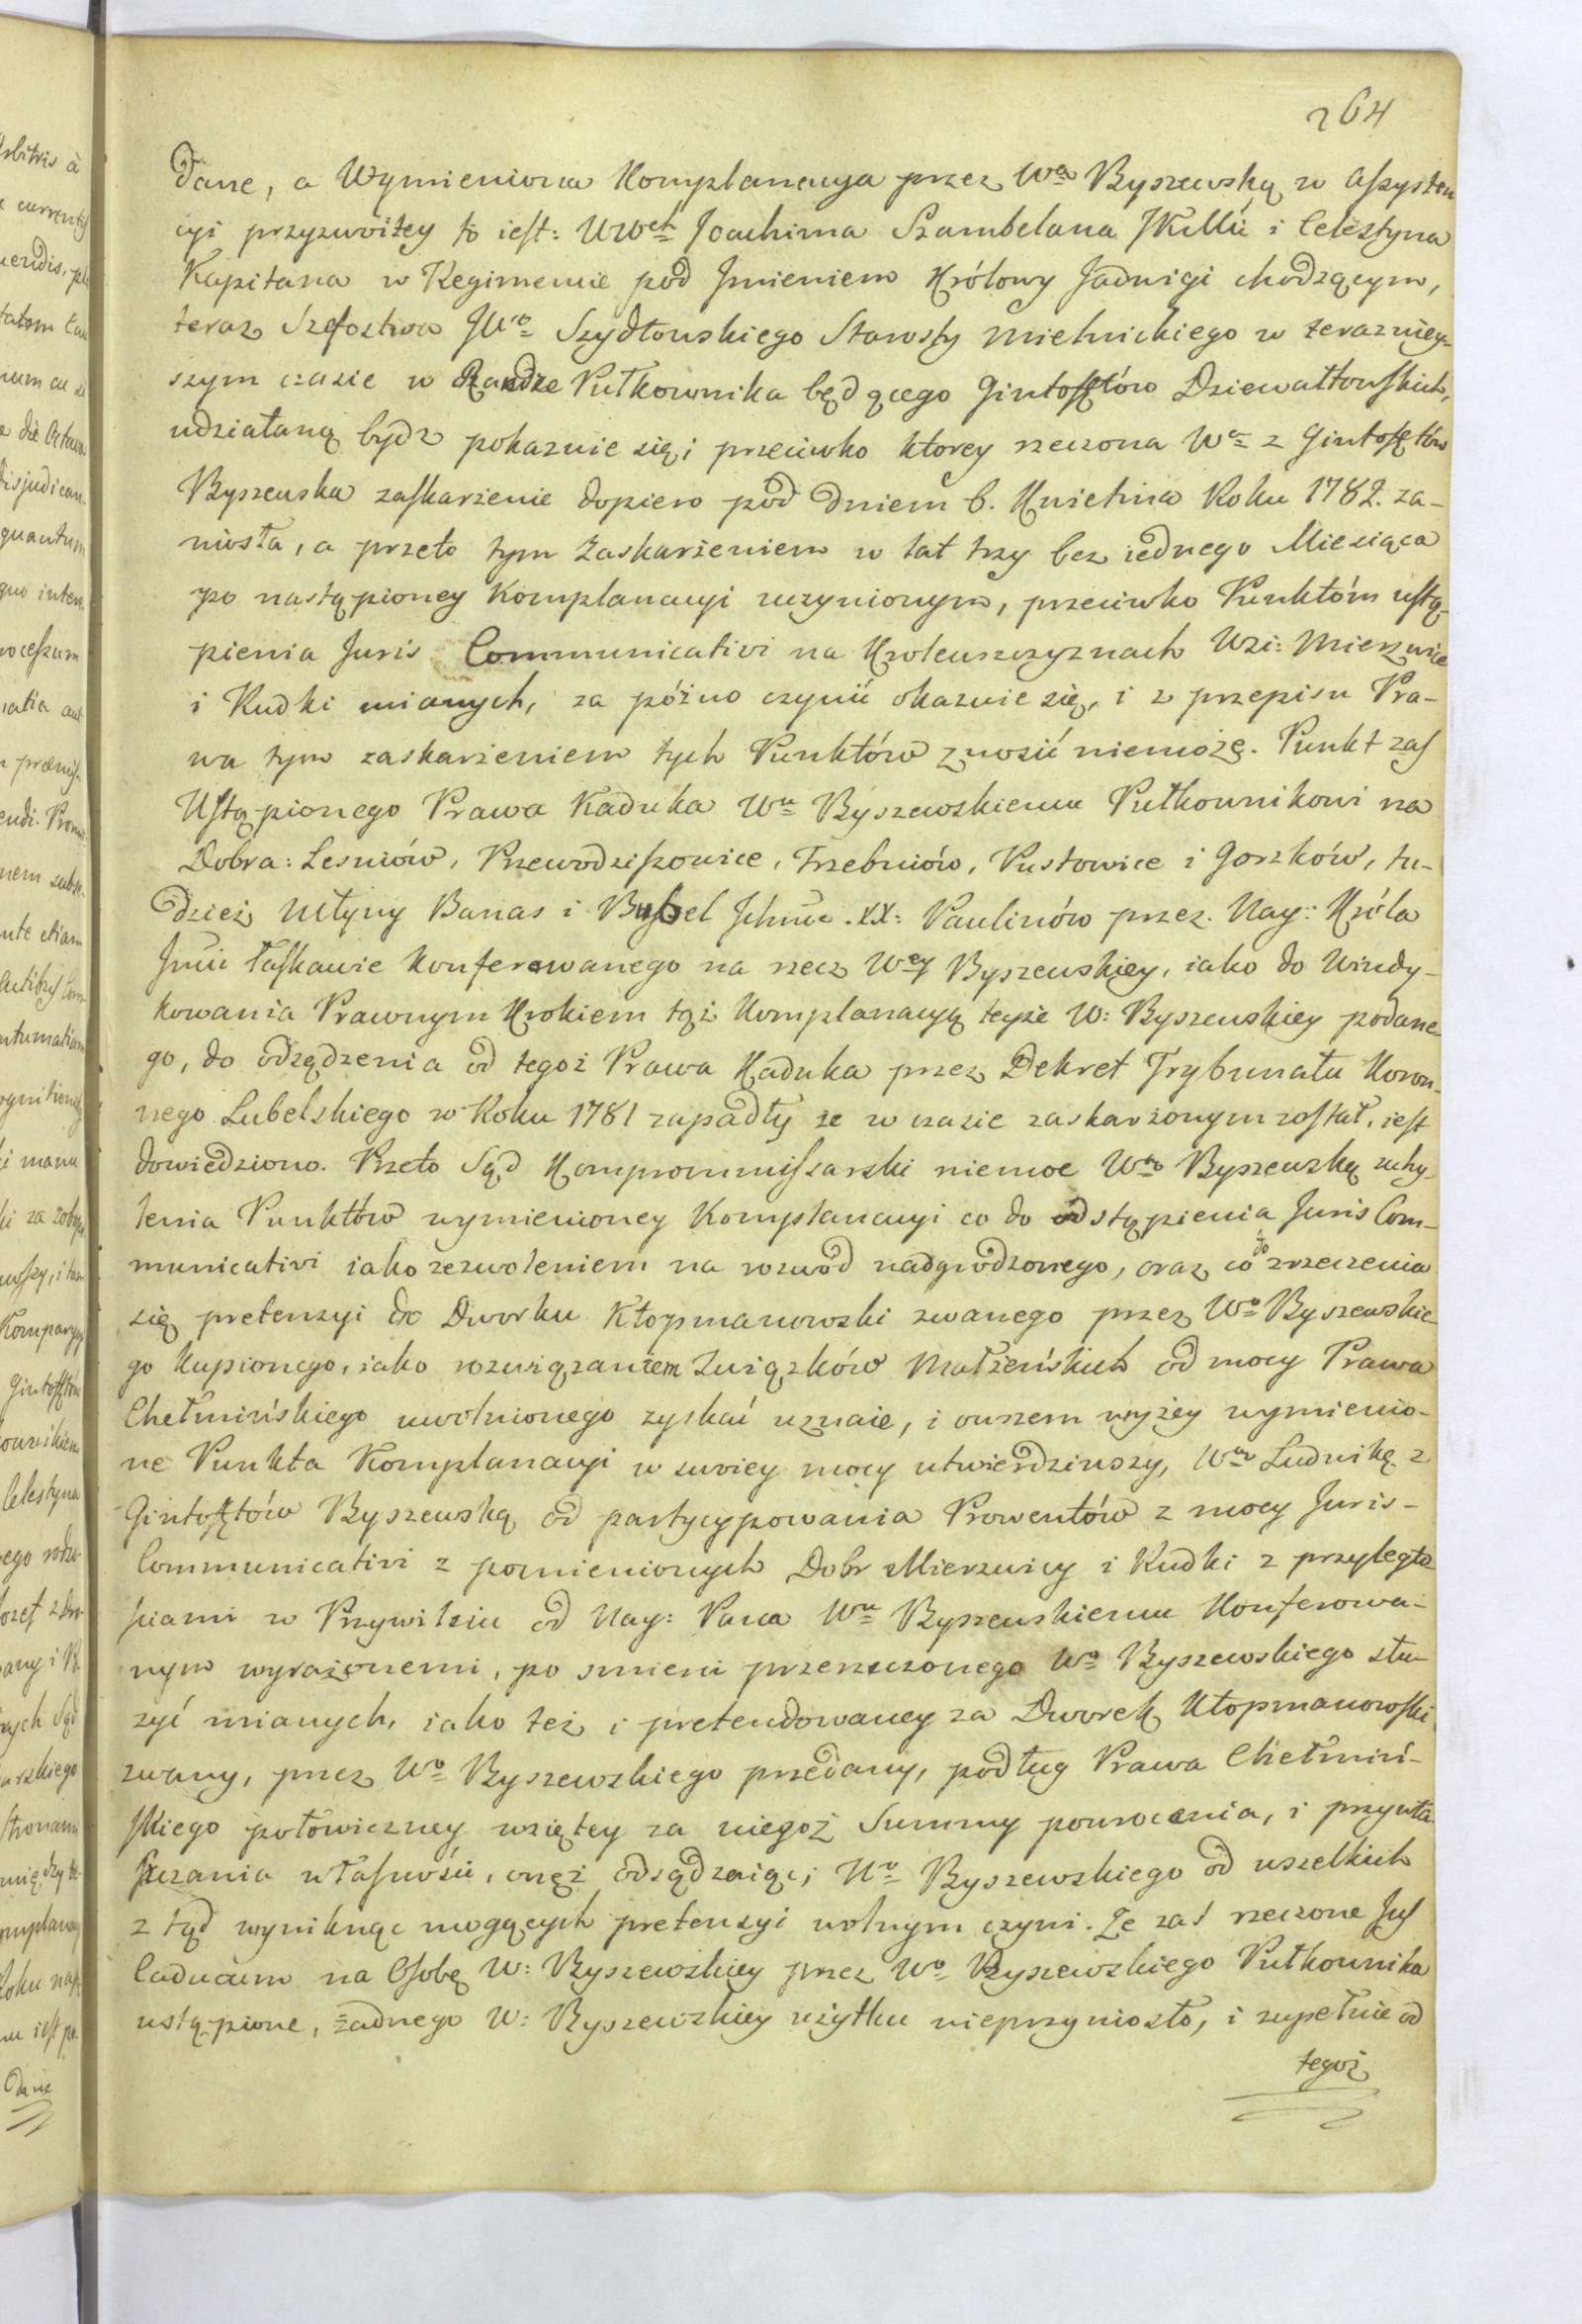 264
Dane, a Wymieniona Komplanacya przez Wą Byszewską w Assysten
cyi przyzwoitey to iest: Urodch Joachima Szambelana JKMći i Celestyna
Kapitana w Regimencie pod Jmieniem Królowy Jadwigi chodzącym,
teraz Szefostwa JWo Szydłowskiego Starosty Mielnickiego w terazniey-
szym czasie w Randze Pułkownika będącego Gintofftów Dziewałtowskich,
udziałaną bydz pokazuie się; przeciwko ktorey rzeczona Wa z Gintofftów
Byszewska zaskarżenie dopiero pod Dniem 6. Kwietnia Roku 1782. za-
niosła, a przeto tym Zaskarżeniem w lat trzy bez iednego Miesiąca
po nastąpioney Komplanacyi uczynionym, przeciwko Punktóm ustą-
pienia Juris Communicativi na Krolewszczyznach Wsi: Mierzwice
i Kudki mianych, za póżno czynić okazuie się, i z przepisu Pra-
wa tym zaskarżeniem tych Punktów znosić niemoże. Punkt zas
Ustąpionego Prawa Kaduka Wu Byszewskiemu Pułkownikowi na
Dobra: Lesniów, Przewodziszowice, Trzebniów, Pustowice i Gorzków, tu-
dzież Młyny Banas i Bussel Jchmc. XX: Paulinów przez. Nay: Króla
Jmći łaskawie konferowanego na rzecz Wey Byszewskiey, iako do Windy-
kowania Prawnym Krokiem tąż Komplanacyą teyże W: Byszewskiey podane
go, do odsądzenia od tegoż Prawa Kaduka przez Dekret Trybunału Koron-
nego Lubelskiego w Roku 1781 zapadły że w czasie zaskarżonym został, iest
dowiedziono. Przeto Sąd Kompromissarski niemoc Wą Byszewską uchy-
lenia Punktów wymienioney Komplanacyi co do odstąpienia Juris Com-
municativi iako zezwoleniem na rozwód nadgrodzonego, oraz co do zrzeczenia
się pretensyi do Dworku Kłopmanowski zwanego przez Wo Byszewskie-
go Kupionego, iako rozwiązaniem Związków Małżeńskich od mocy Prawa
Chełmińskiego uwolnionego zyskać uznaie, i owszem wyżey wymienio-
ne Punkta Komplanacyi w swoiey mocy utwierdziwszy, Wą Ludwikę z
Gintofftów Byszewską od partycypowania Prowentów z mocy Juris-
Communicativi z pomienionych Dobr Mierzwicy i Kudki z przyległo-
sciami w Przywileiu od Nay: Pana Wu Byszewskiemu Konferowa-
nym wyrażonemi, po smierci przerzeczonego Wo Byszewskiego słu-
żyć mianych, iako też i pretendowaney za Dworek Kłopmanowski
zwany, przez Wo Byszewskiego przedany, podług Prawa Chełmiń-
skiego połowiczney wziętey za niegoż Summy powrocenia, i przywła-
szczania własności, onęż odsądzaiąc; Wo Byszewskiego od wszelkich
z tąd wyniknąc mogących pretensyi wolnym czyni. Że zaś rzeczone Jus
Caducum na Osobę W: Byszewskiey przez Wo Byszewskiego Pułkownika
ustąpione, żadnego W: Byszewskiey użytku nieprzyniosło, i zupełnie od
tegoż